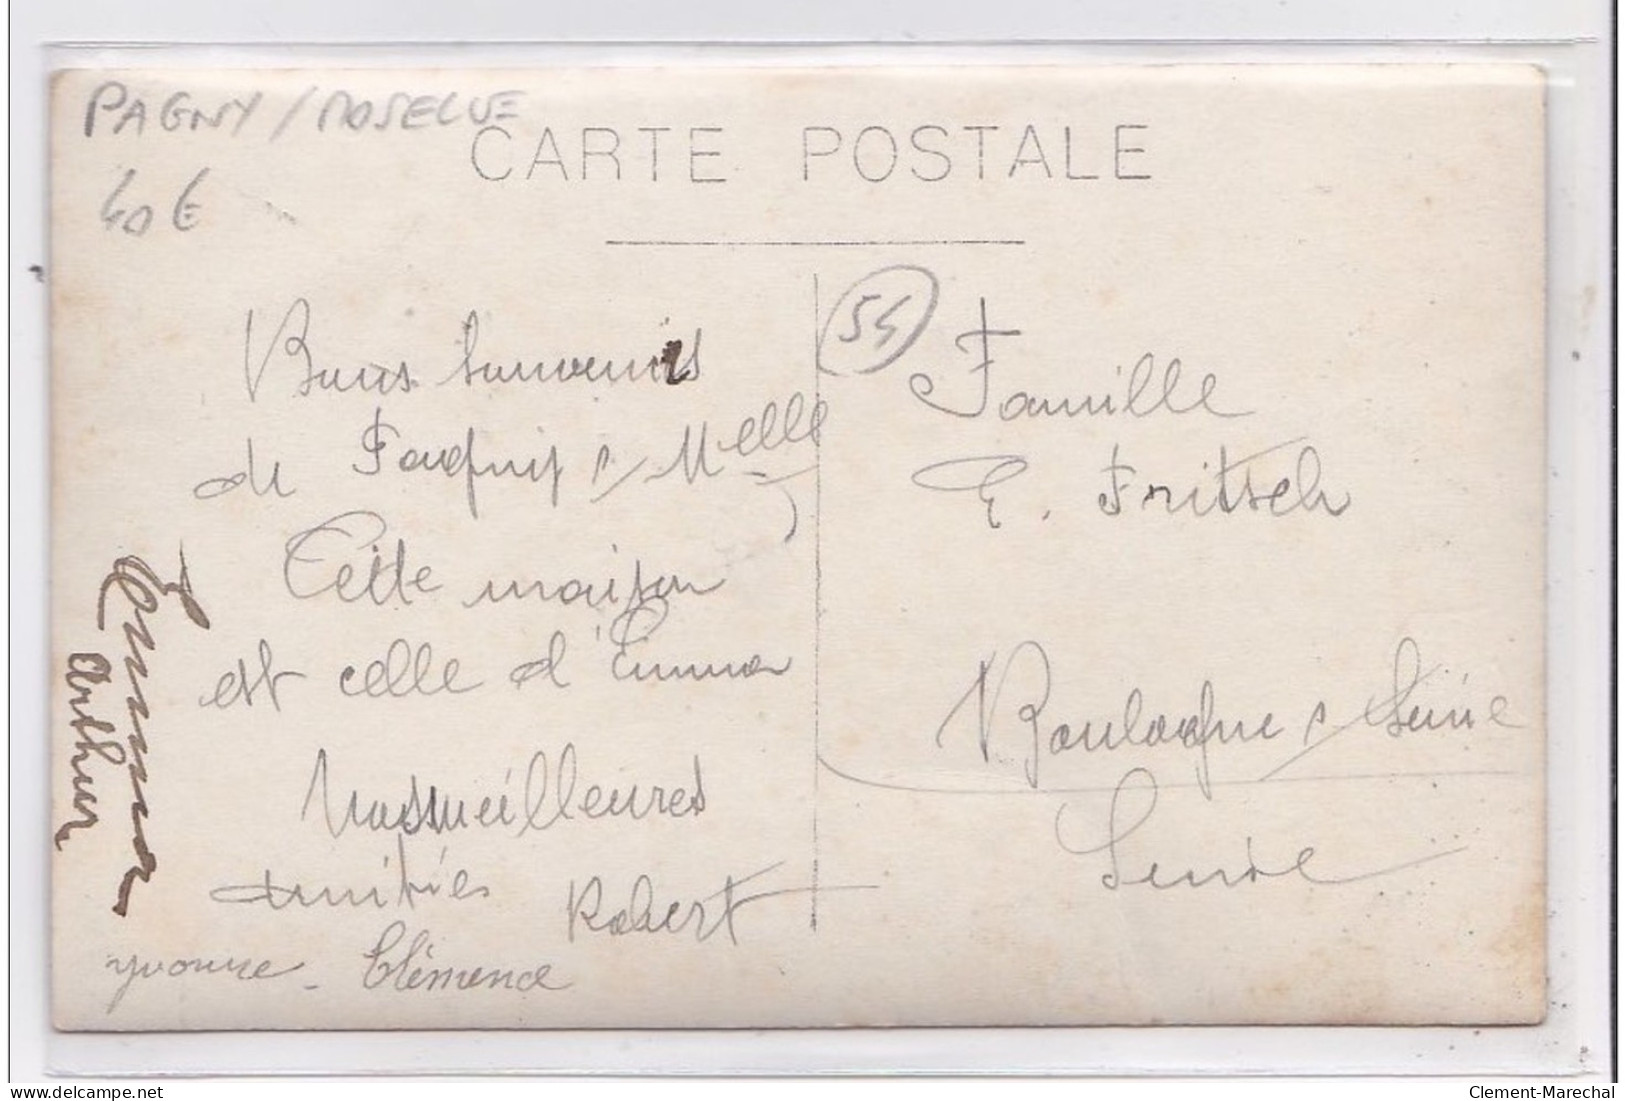 PAGNY / MOSELLE
40 €
CARTE POSTALE
54
Bons souvenirs
de Pagny s/ Melle
Cette maison
est celle d'Emma
Nos meilleures
amitiés Robert
yvonne - Clémence
Emma
Arthur
Famille
E. Fritsch
Boulogne s/ Seine
Seine
delcampe.net
Clement-Marechal